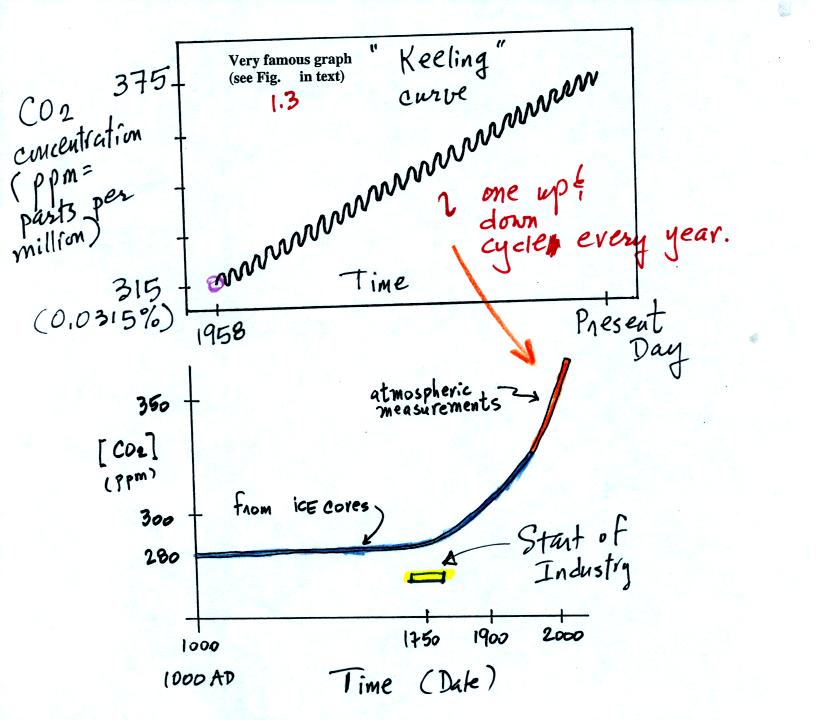 Very famous graph
(see Fig. in text)
1.3
" Keeling "
curve
375
CO2
concentration
(ppm=
parts per
million)
315
(0.0315%)
one up &
down
cycle every year.
Time
1958
Present
Day
350
[CO2]
(ppm)
300
280
atmospheric
measurements
from ICE cores
Start of
Industry
1000
1750
1900
2000
1000 AD
Time (Date)